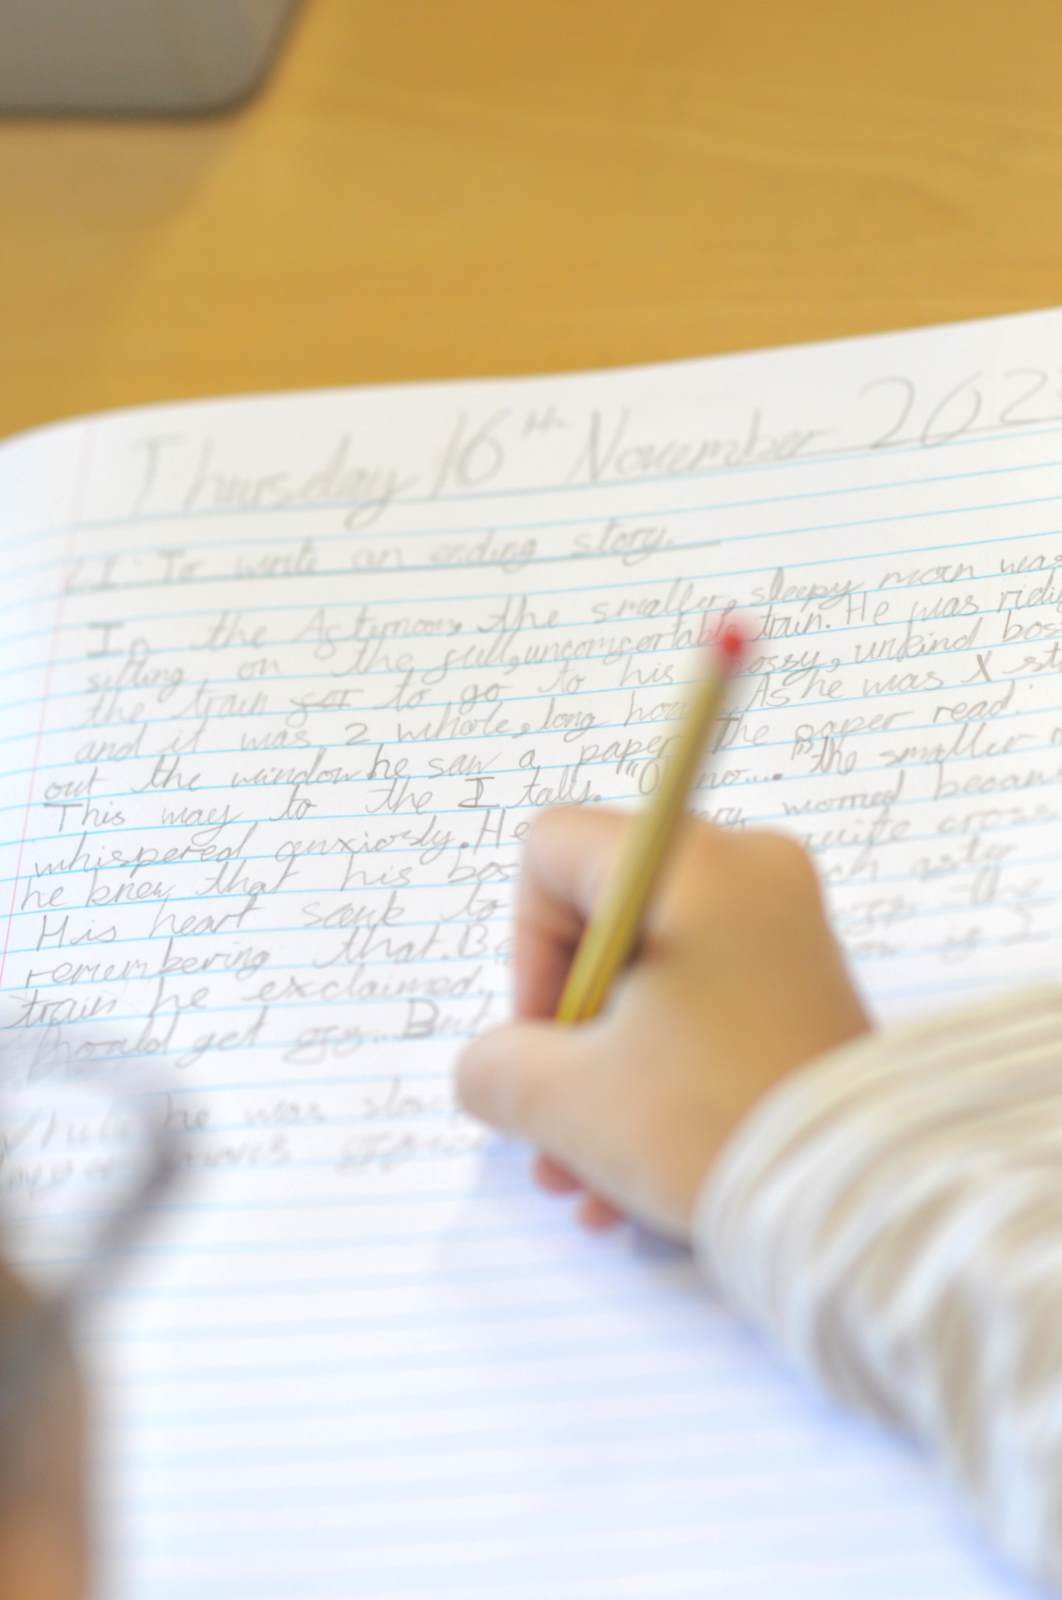 Thursday 16th November 202
LI: To write an ending story.
In the Afternoon, the smaller, sleepy man was
sitting on the full, uncomfortable train. He was ridi
the train for to go to his bossy, unkind bos
and it was 2 whole, long hou As he was X st
out the window he saw a paper The paper read.
This way to the I talls. "O no...." the smaller
whispered anxiously. He ery worried becau
he knew that his bos quite cross
His heart sank to ch after
remembering that. B off the
train he exclaimed. is I
should get off... But
he was